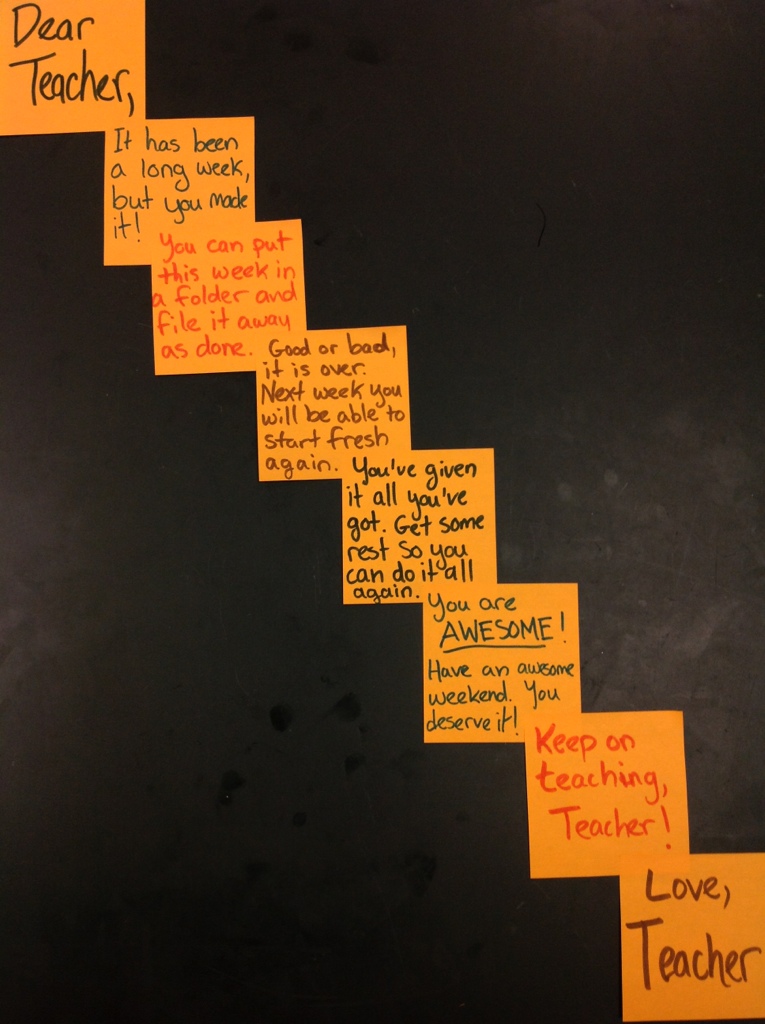 Dear
Teacher,
It has been
a long week,
but you made
it!
You can put
this week in
a folder and
file it away
as done.
Good or bad,
it is over.
Next week you
will be able to
start fresh
again.
You've given
it all you've
got. Get some
rest so you
can do it all
again.
You are
AWESOME!
Have an awesome
weekend. You
deserve it!
Keep on
teaching,
Teacher!
Love,
Teacher